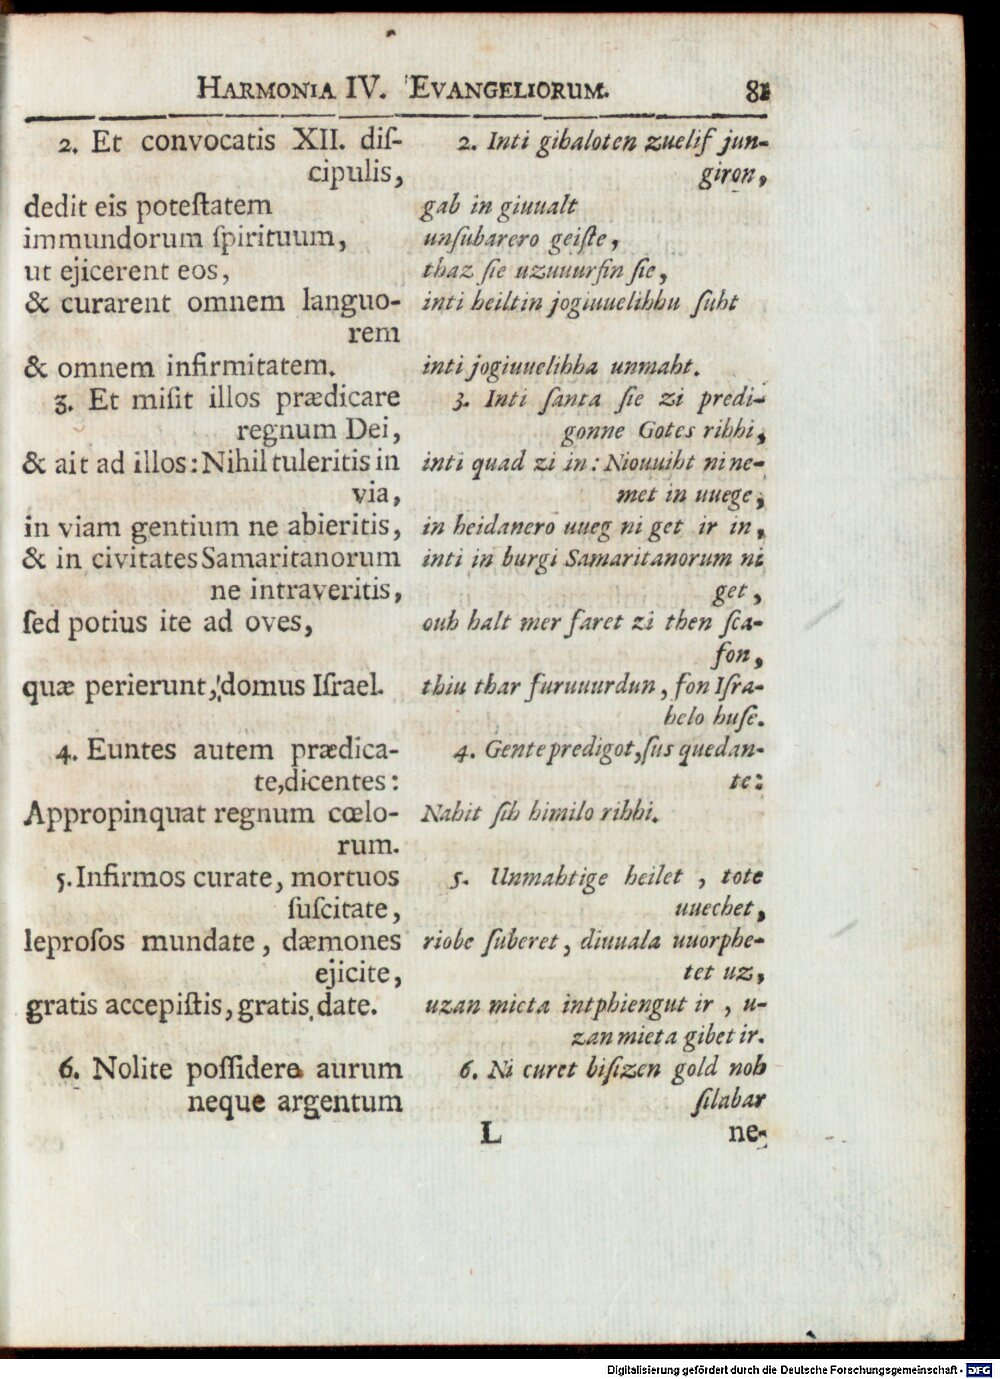 HARMONIA IV. EVANGELIORUM. 81
2. Et convocatis XII. diſ-
cipulis,
dedit eis poteſtatem
immundorum ſpirituum,
ut ejicerent eos,
& curarent omnem languo-
rem
& omnem infirmitatem.
3. Et miſit illos prædicare
regnum Dei,
& ait ad illos: Nihil tuleritis in
via,
in viam gentium ne abieritis,
& in civitates Samaritanorum
ne intraveritis,
ſed potius ite ad oves,
quæ perierunt, domus Iſrael.
4. Euntes autem prædica-
te, dicentes:
Appropinquat regnum cœlo-
rum.
5. Infirmos curate, mortuos
ſuſcitate,
leproſos mundate, dæmones
ejicite,
gratis accepiſtis, gratis date.
6. Nolite poſſidere aurum
neque argentum
2. Inti gihaloten zuelif jun-
giron,
gab in giuualt
unſubarero geiſte,
thaz ſie uzuuurfin ſie,
inti heiltin jogiuuelihhu ſuht
inti jogiuuelihha unmaht.
3. Inti ſanta ſie zi predi-
gonne Gotes rihhi,
inti quad zi in: Niouuiht ni ne-
met in uuege,
in heidanero uueg ni get ir in,
inti in burgi Samaritanorum ni
get,
ouh halt mer faret zi then ſca-
fon,
thiu thar furuuurdun, fon Iſra-
helo huſe.
4. Gente predigot, ſus quedan-
te:
Nahit ſih himilo rihhi.
5. Unmahtige heilet, tote
uuechet,
riobe ſuberet, diuuala uuorphe-
tet uz,
uzan mieta intphiengut ir, u-
zan mieta gibet ir.
6. Ni curet biſizen gold noh
ſilabar
L ne-
Digitalisierung gefördert durch die Deutsche Forschungsgemeinschaft - DFG